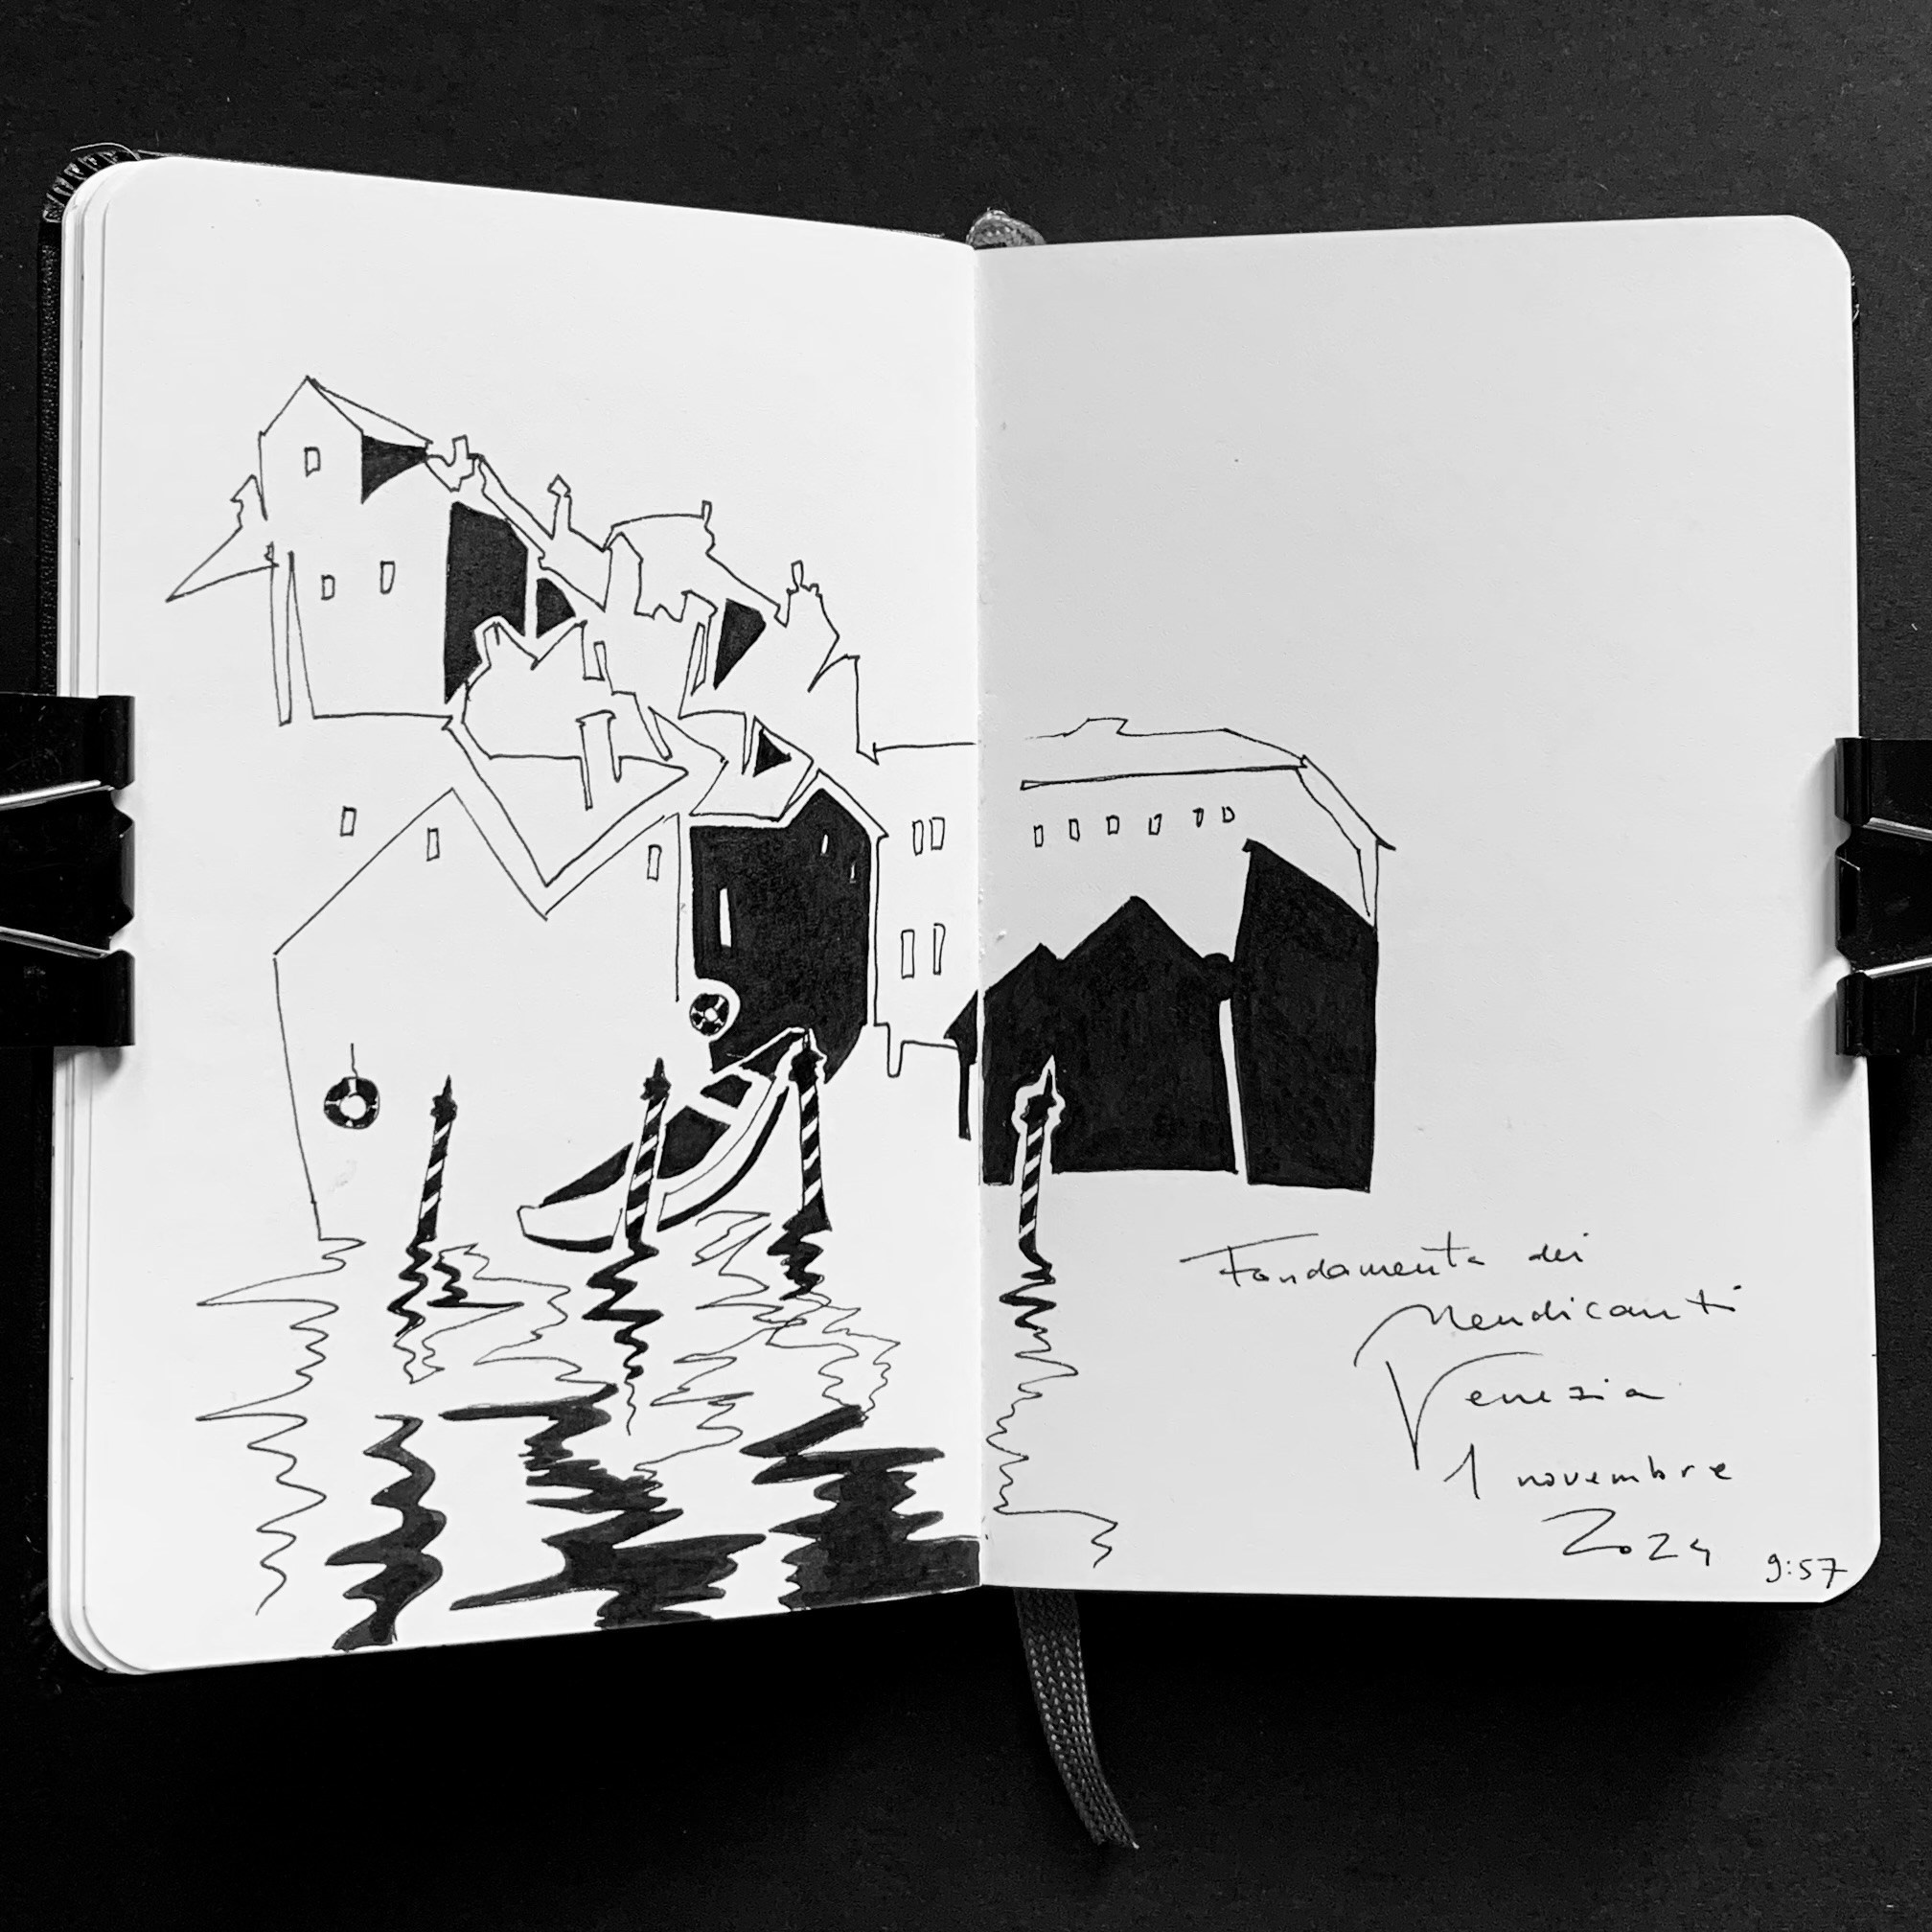 Fondamenta dei
Mendicanti
Venezia
1 novembre
2024
9:57